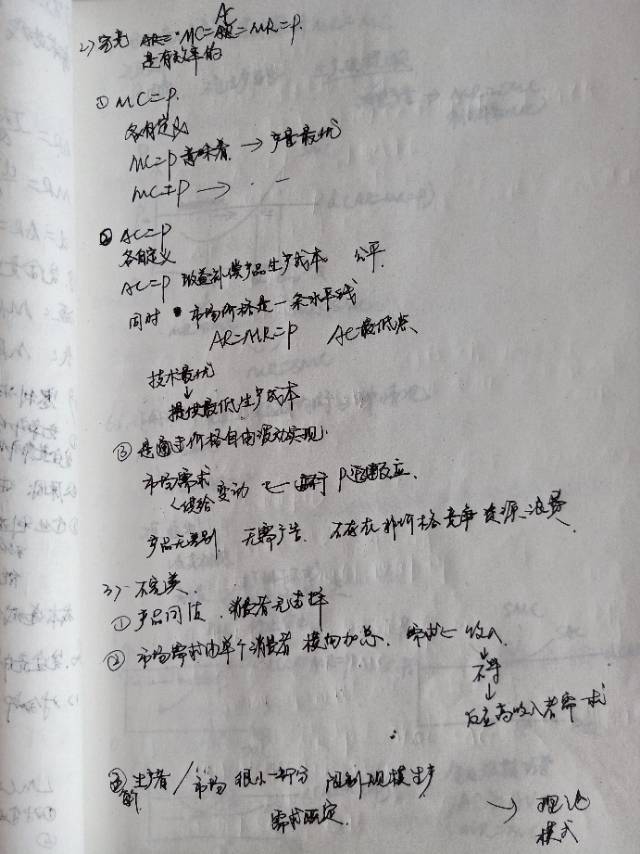 AC
2) 完竞 AR=MC=AR=MR=P.
是有效率的
① MC=P.
各有定义
MC=P 意味着 → 产量最优
MC≠P →
② AC=P
各自定义
AC=P 收益补偿产品生产成本 公平
同时 市场价格是一条水平线
AR=MR=P AC最低点
技术最优
↓
提供最低生产成本
③ 是通过价格自由波动实现.
市场需求
供给 变动 ← P迅速反应.
产品无差别 无需广告. 不存在非价格竞争 资源浪费
3) 不完美.
① 产品同质, 消费者无选择
② 市场需求由单个消费者 横向加总. 需求 ← 收入
↓
不等
↓
反应高收入者需求
③ 生产者/市场 很小一部分 限制规模生产
需求既定.
→ 理论
模式